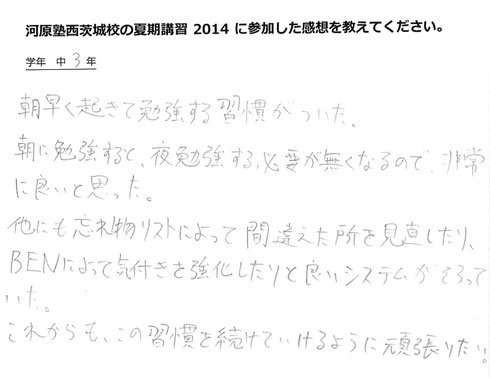 河原塾西茨城校の夏期講習 2014 に参加した感想を教えてください。
学年 中 3 年
朝早く起きて勉強する習慣がついた。
朝に勉強すると、夜勉強する必要が無くなるので、非常
に良いと思った。
他にも忘れ物リストによって間違えた所を見直したり、
BENによって気付きを強化したりと良いシステムがそろって
いた。
これからも、この習慣を続けていけるように頑張りたい。